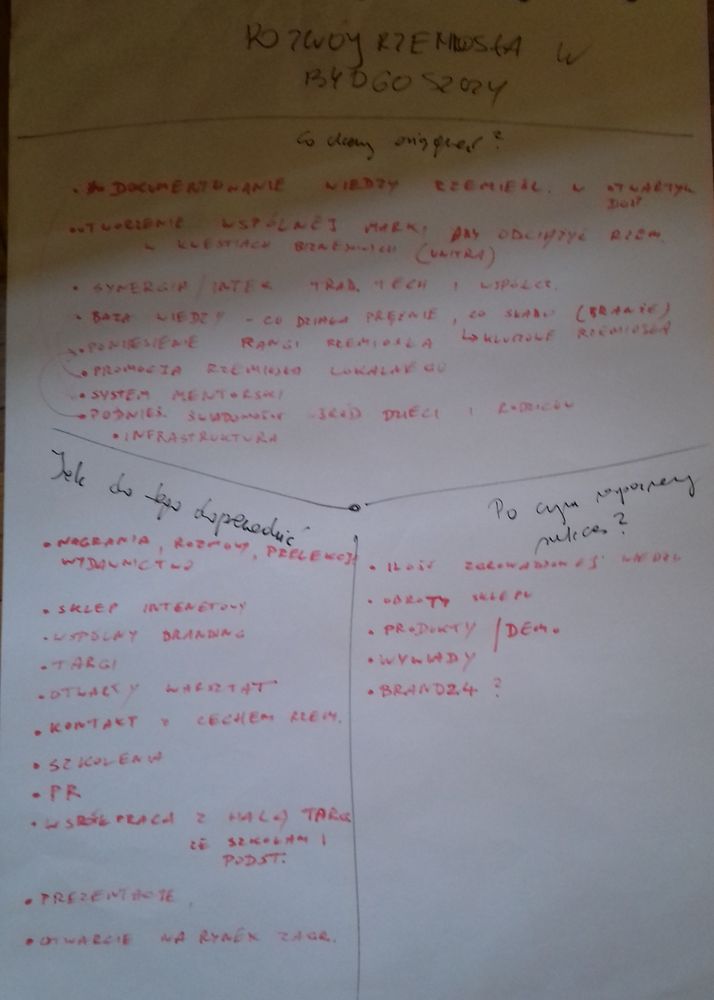 ROZWÓJ RZEMIOSŁA W
BYDGOSZCZY
Co chcemy osiągnąć?
• DOKUMENTOWANIE WIEDZY RZEMIEŚL. W OTWARTYM
• TWORZENIE WSPÓLNEJ MARKI, ABY ODCIĄŻYĆ RZEM.
W KWESTIACH BIZNESOWYCH (UNITRA)
• SYNERGIA/INTER TRAD. TECH I WSPÓŁCZ.
• BAZA WIEDZY - CO DZIAŁA PRĘŻNIE, CO SŁABO (BRANŻE)
• PONIESIENIE RANGI RZEMIOSŁA ↳ KLUCZOWE RZEMIOSŁA
• PROMOCJA RZEMIOSŁA LOKALNEGO
• SYSTEM MENTORSKI
• PODNIEŚ. ŚWIADOMOŚCI WŚRÓD DZIECI I RODZICÓW
• INFRASTRUKTURA
Jak do tego doprowadzić
• NAGRANIA, ROZMOWY, PRELEKCJE
WYDAWNICTWO
• SKLEP INTERNETOWY
• WSPÓLNY BRANDING
• TARGI
• OTWARTY WARSZTAT
• KONTAKT Z CECHEM RZEM.
• SZKOLENIA
• PR
• WSPÓŁPRACA Z HALĄ TARG
ZE SZKOŁAMI
PODST.
• PREZENTACJE
• OTWARCIE NA RYNEK ZAGR.
Po czym rozpoznamy
sukces?
• ILOŚĆ ZGROMADZONEJ WIEDZY
• OBROTY SKLEPU
• PRODUKTY / DEMO
• WYWIADY
• BRANDZA ?